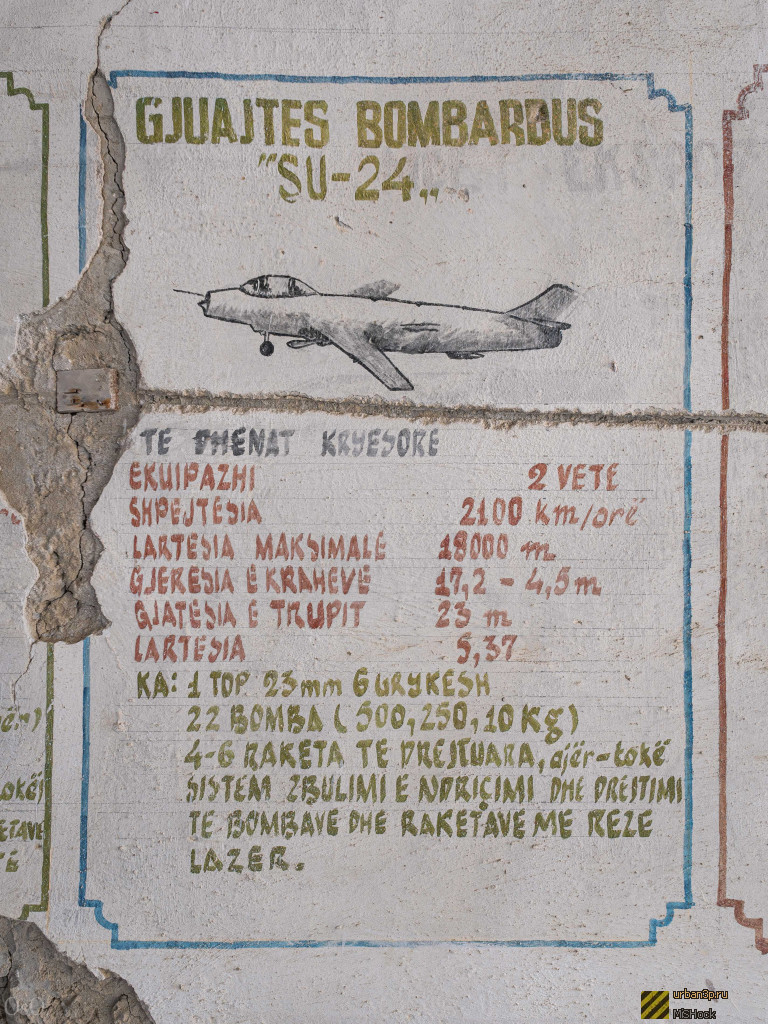 GJUAJTES BOMBARDUS
"SU-24"
TE DHENAT KRYESORE
EKUIPAZHI 2 VETE
SHPEJTESIA 2100 km/orë
LARTESIA MAKSIMALE 18000 m
GJERESIA E KRAHEVE 17,2 - 4,5 m
GJATESIA E TRUPIT 23 m
LARTESIA 5,37
KA: 1 TOP 23mm 6 GRYKESH
22 BOMBA (500,250,10Kg)
4-6 RAKETA TE DREJTUARA, ajër-tokë
SISTEM ZBULIMI E NDRIÇIMI DHE DREJTIMI
TE BOMBAVE DHE RAKETAVE ME REZE
LAZER.
urban3p.ru
MSHock